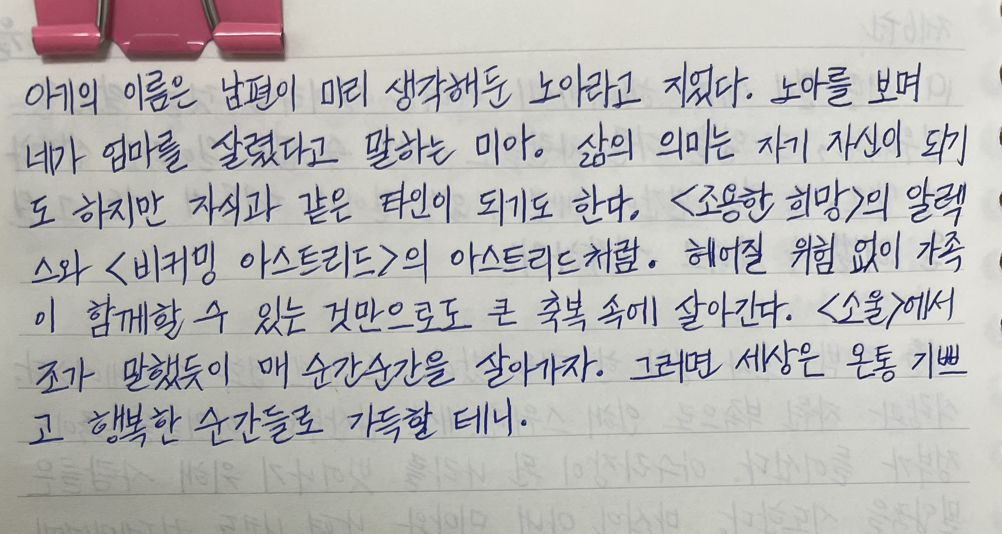 아기의 이름은 남편이 미리 생각해둔 노아라고 지었다. 노아를 보며
네가 엄마를 살렸다고 말하는 미아. 삶의 의미는 자기 자신이 되기
도 하지만 자식과 같은 타인이 되기도 한다. <조용한 희망>의 알렉
스와 <비커밍 아스트리드>의 아스트리드처럼. 헤어질 위험 없이 가족
이 함께할 수 있는 것만으로도 큰 축복 속에 살아간다. <소울>에서
조가 말했듯이 매 순간순간을 살아가자. 그러면 세상은 온통 기쁘
고 행복한 순간들로 가득할 테니.